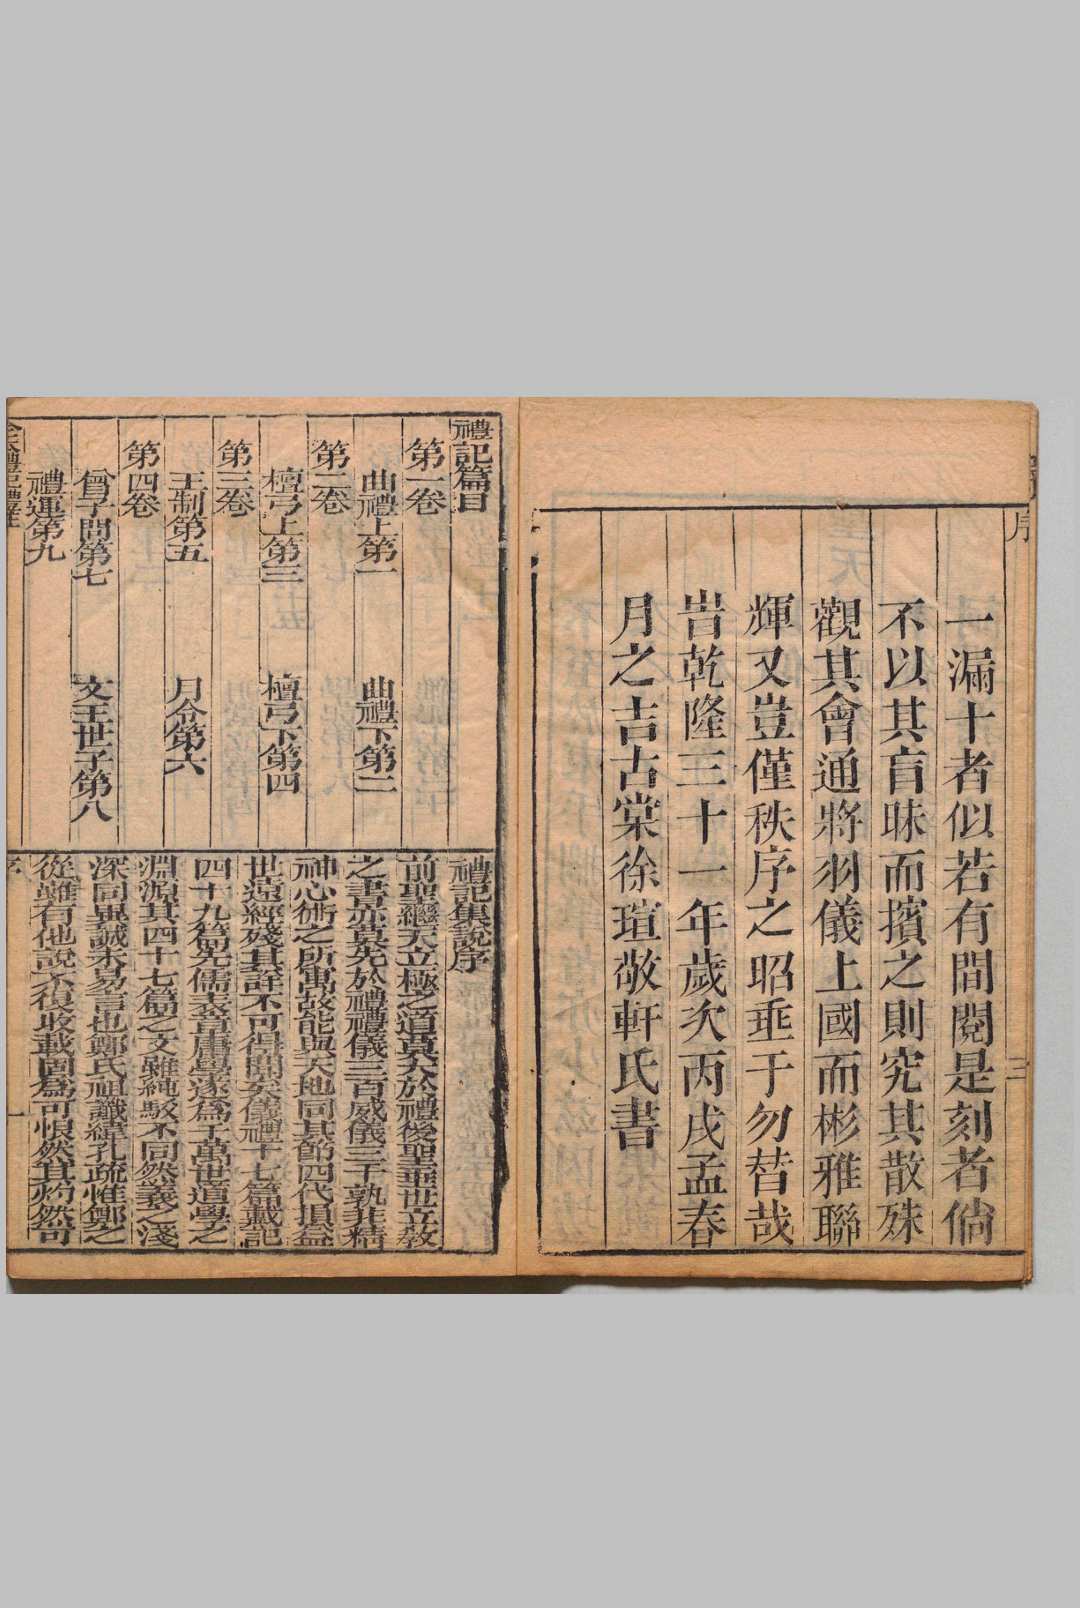 序
一漏十者似若有間閱是刻者倘
不以其盲昧而擯之則究其散殊
觀其會通將羽儀上國而彬雅聯
輝又豈僅秩序之昭垂于勿替哉
旹乾隆三十一年歲次丙戌孟春
月之吉古棠徐瑄敬軒氏書
三
禮記篇目
第一卷
曲禮上第一
曲禮下第二
第二卷
檀弓上第三
檀弓下第四
第三卷
王制第五
月令第六
第四卷
曾子問第七
文王世子第八
禮運第九
禮記集說序
前聖繼天立極之道莫大於禮後聖垂世立教
之書亦莫先於禮禮儀三百威儀三千孰非精
神心術之所寓故能與天地同其節四代損益
世遠經殘其詳不可得聞矣儀禮十七篇戴記
四十九篇先儒表章庸學遂為千萬世道學之
淵源其四十七篇之文雖純駁不同然義之淺
深同異誠未易言也鄭氏祖讖緯孔疏惟鄭之
從雖有他說不復收載固為可恨然其灼然可
序
一